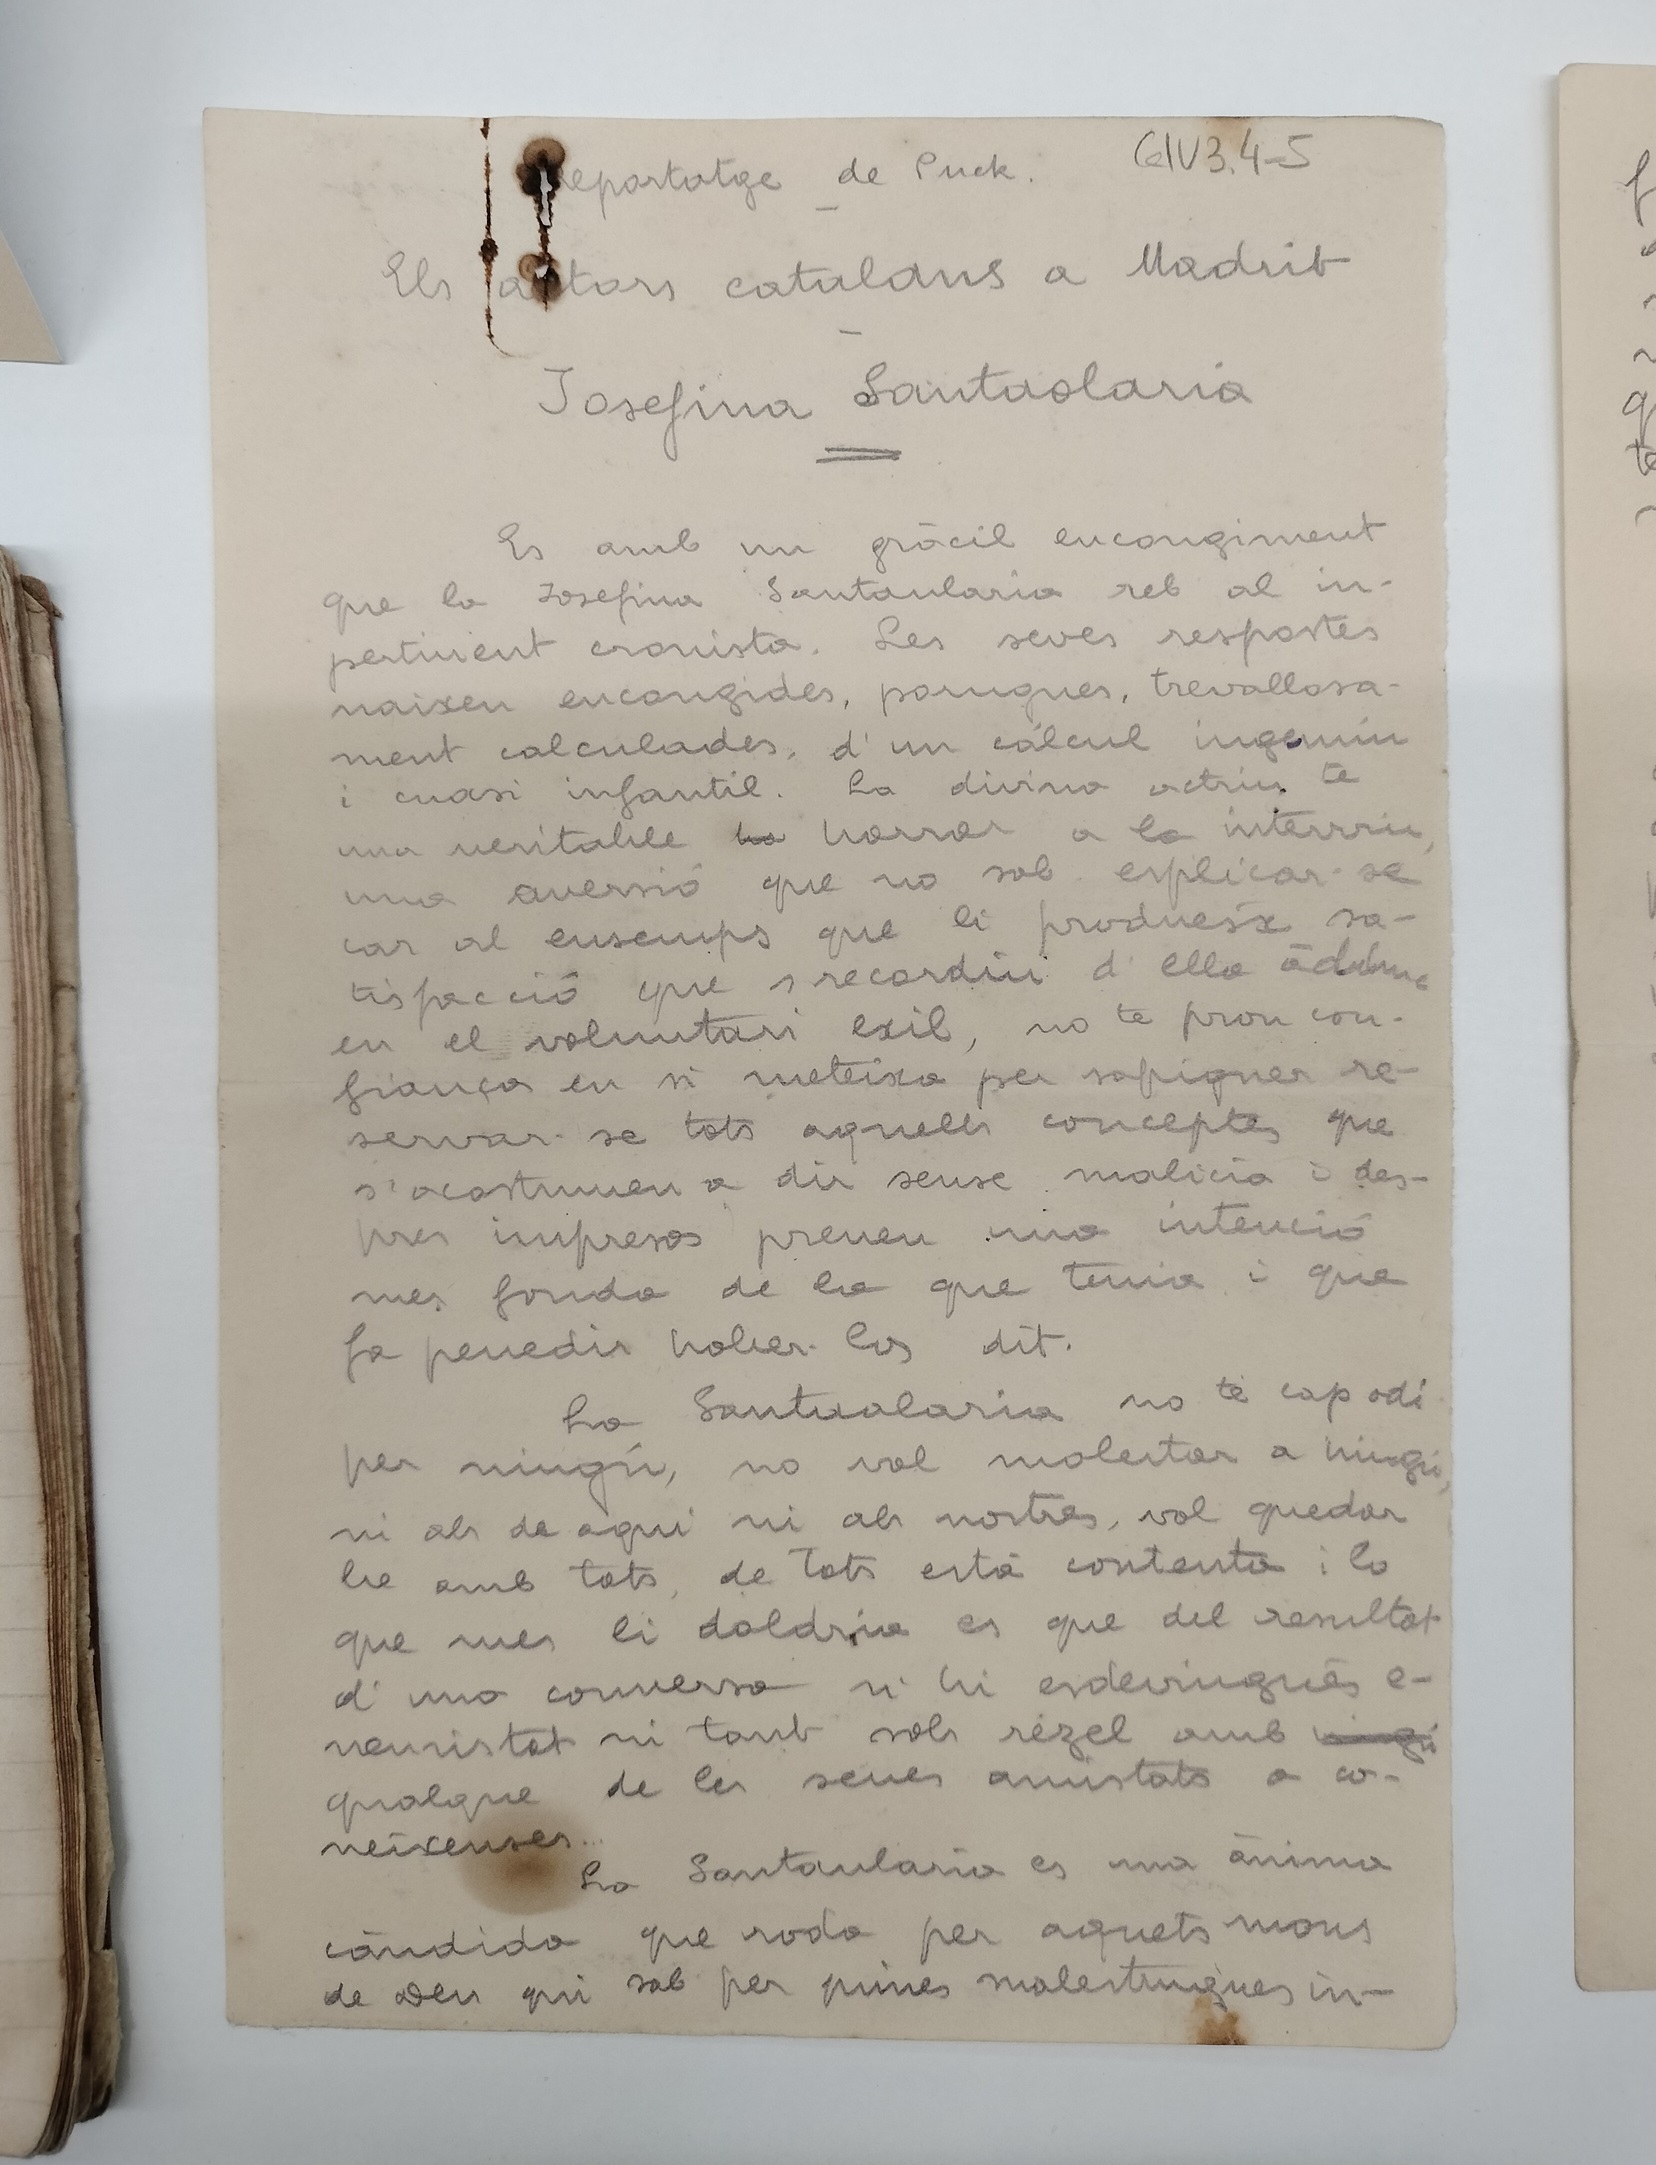 Reportatge de Puck. GIV3.4-5
Els actors catalans a Madrit
Josefina Santaolaria
Es amb un gràcil encongiment
que la Josefina Santaularia reb al in-
pertinent cronista. Les seves respostes
naixen encongides, porugues, trevallosa-
ment calculades, d'un càlcul ingenuu
i cuasi infantil. La divina actriu te
una veritable ho horror a la interviu,
una aversió que no sab esplicar-se
car al ensemps que li produeix sa-
tisfacció que s recordin d'ella àdhuc
en el voluntari exil, no te prou con-
fiança en si meteixa per sapiguer re-
servar-se tots aquells conceptes que
s'acostumen a dir sense malicia i des-
pres impresos prenen una intenció
mes fonda de la que tenia i que
fa penedir haber-los dit.
La Santaolaria no té cap odi
per ningú, no vol molestar a ningú,
ni als de aqui ni als nostres, vol quedar
be amb tots, de tots està contenta i lo
que mes li doldria es que del resultat
d'una conversa n'hi esdevingués e-
nemistat ni tant sols rézel amb ningú
qualque de les seues amistats o co-
neixenses...
La Santaularia es una ànima
càndida que roda per aquets mons
de Deu qui sab per quines malestrugues in-